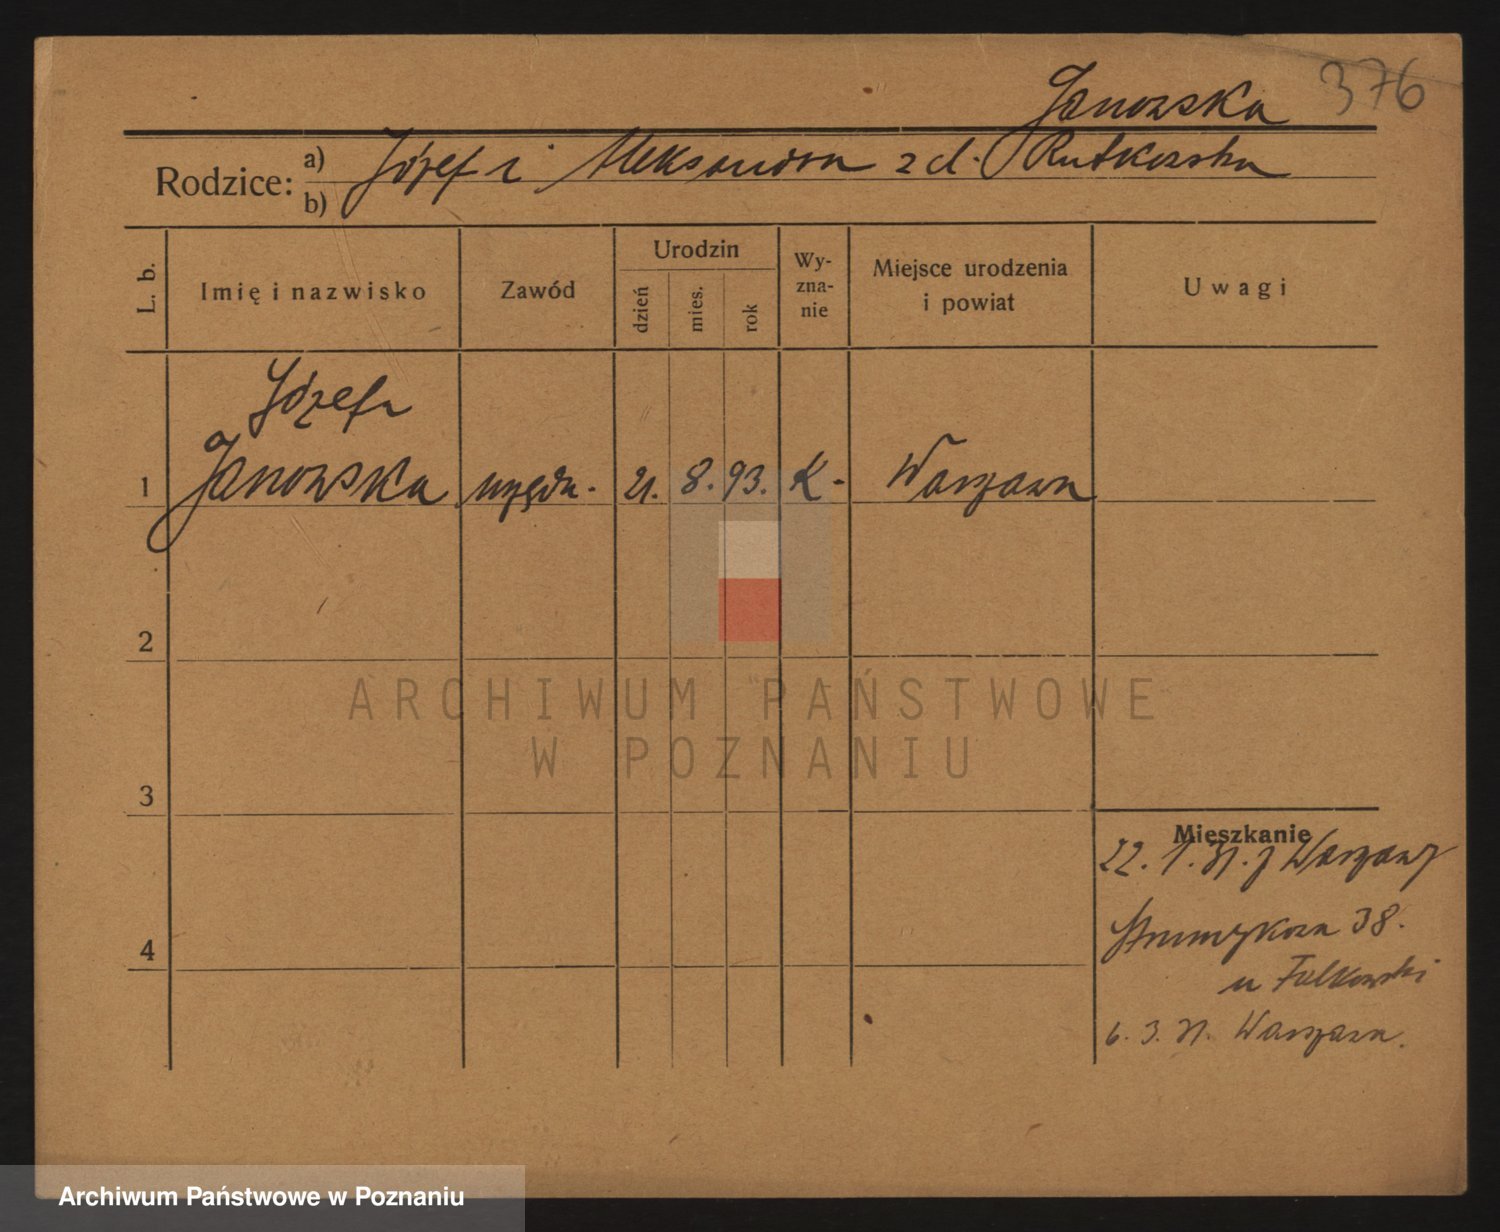 Janowska 376
Rodzice: a) Józef i Aleksandra z d. Rutkowska
b)
L. b. Imię i nazwisko Zawód Urodzin dzień mies. rok Wyznanie Miejsce urodzenia i powiat Uwagi
Józefa
1 Janowska urzędn. 21. 8. 93. K. Warszawa
2
ARCHIWUM PAŃSTWOWE
W POZNANIU
3
Mieszkanie
22. 1. 31. z Warszawy
38.
4
u Falkowski
6. 3. 31. Warszawa.
Archiwum Państwowe w Poznaniu